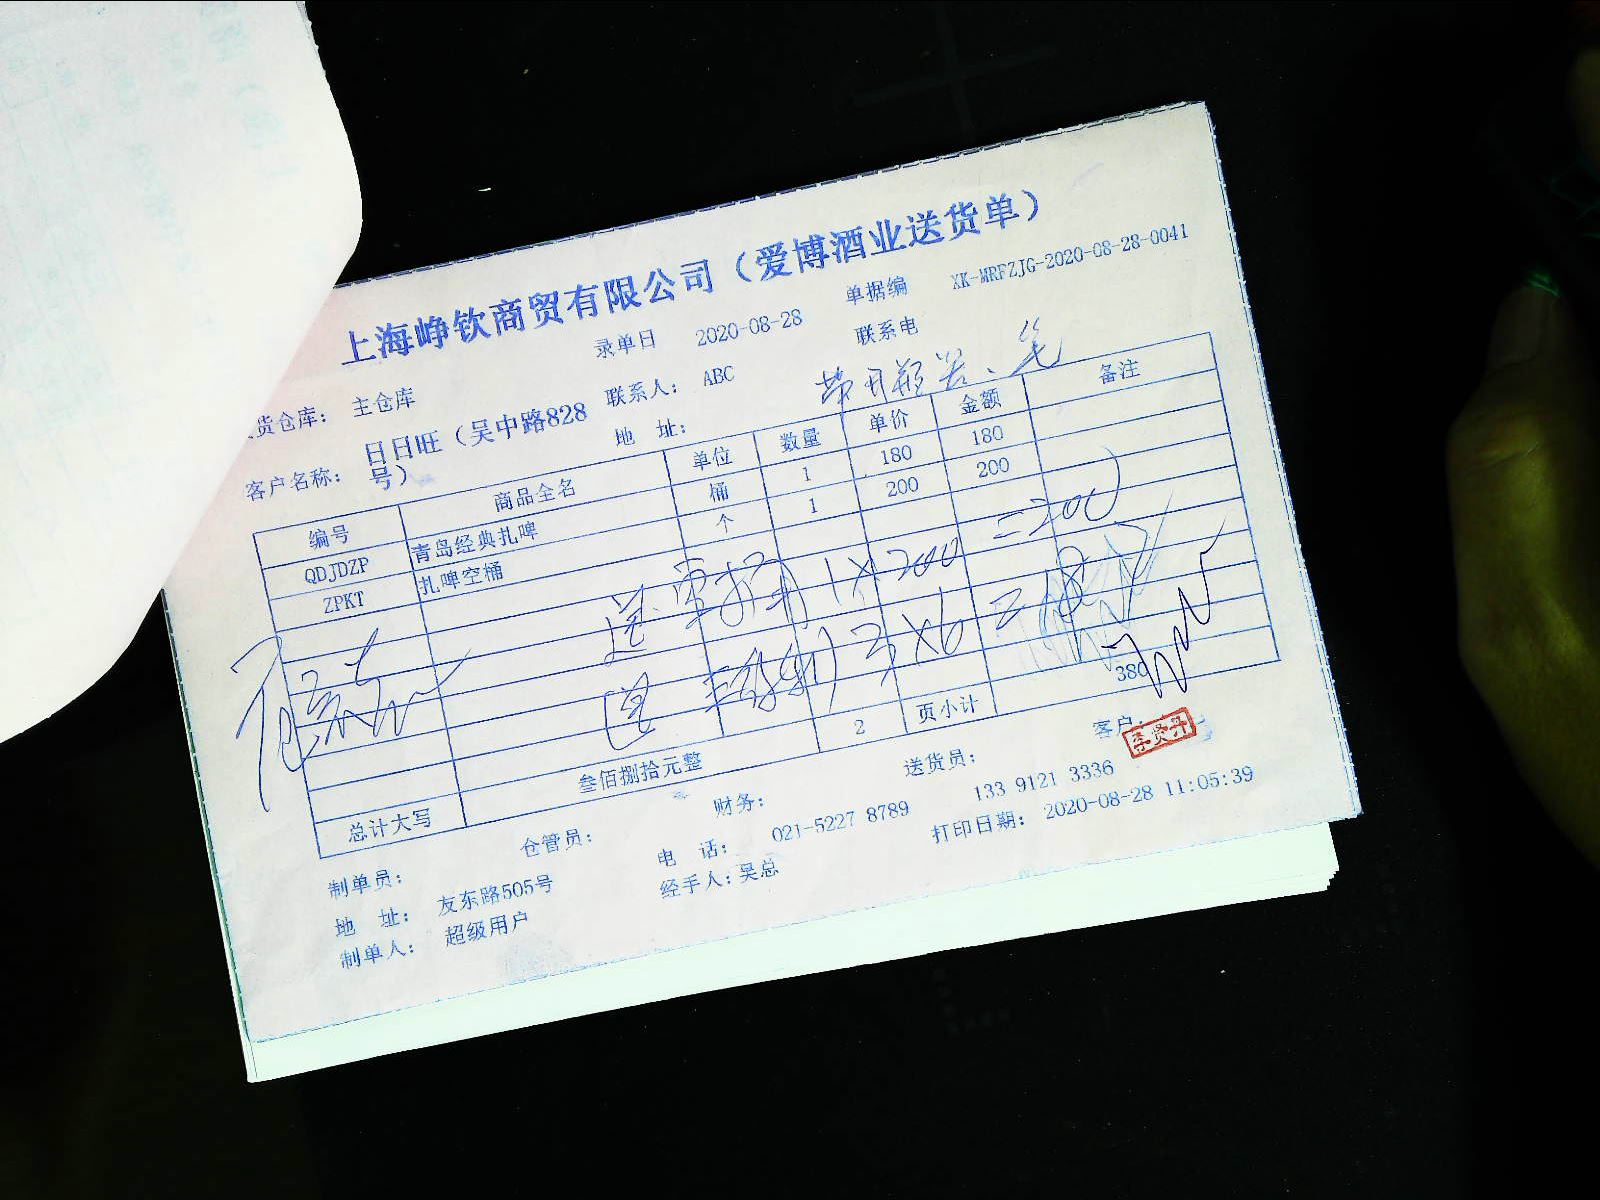 上海峥钦商贸有限公司（爱博酒业送货单）
录单日 2020-08-28 单据编 XK-MRFZJG-2020-08-28-0041
货仓库： 主仓库 联系人： ABC 联系电
客户名称： 日日旺（吴中路828号） 地 址：
编号 商品全名 单位 数量 单价 金额 备注
QDJDZP 青岛经典扎啤 桶 1 180 180
ZPKT 扎啤空桶 个 1 200 200
送 1×200 =200
3×6 =18
380
总计大写 叁佰捌拾元整 2 页小计
制单员： 仓管员： 财务： 送货员： 客户：
李贤丹
地 址： 友东路505号 电 话： 021-5227 8789 133 9121 3336
制单人： 超级用户 经手人：吴总 打印日期： 2020-08-28 11:05:39